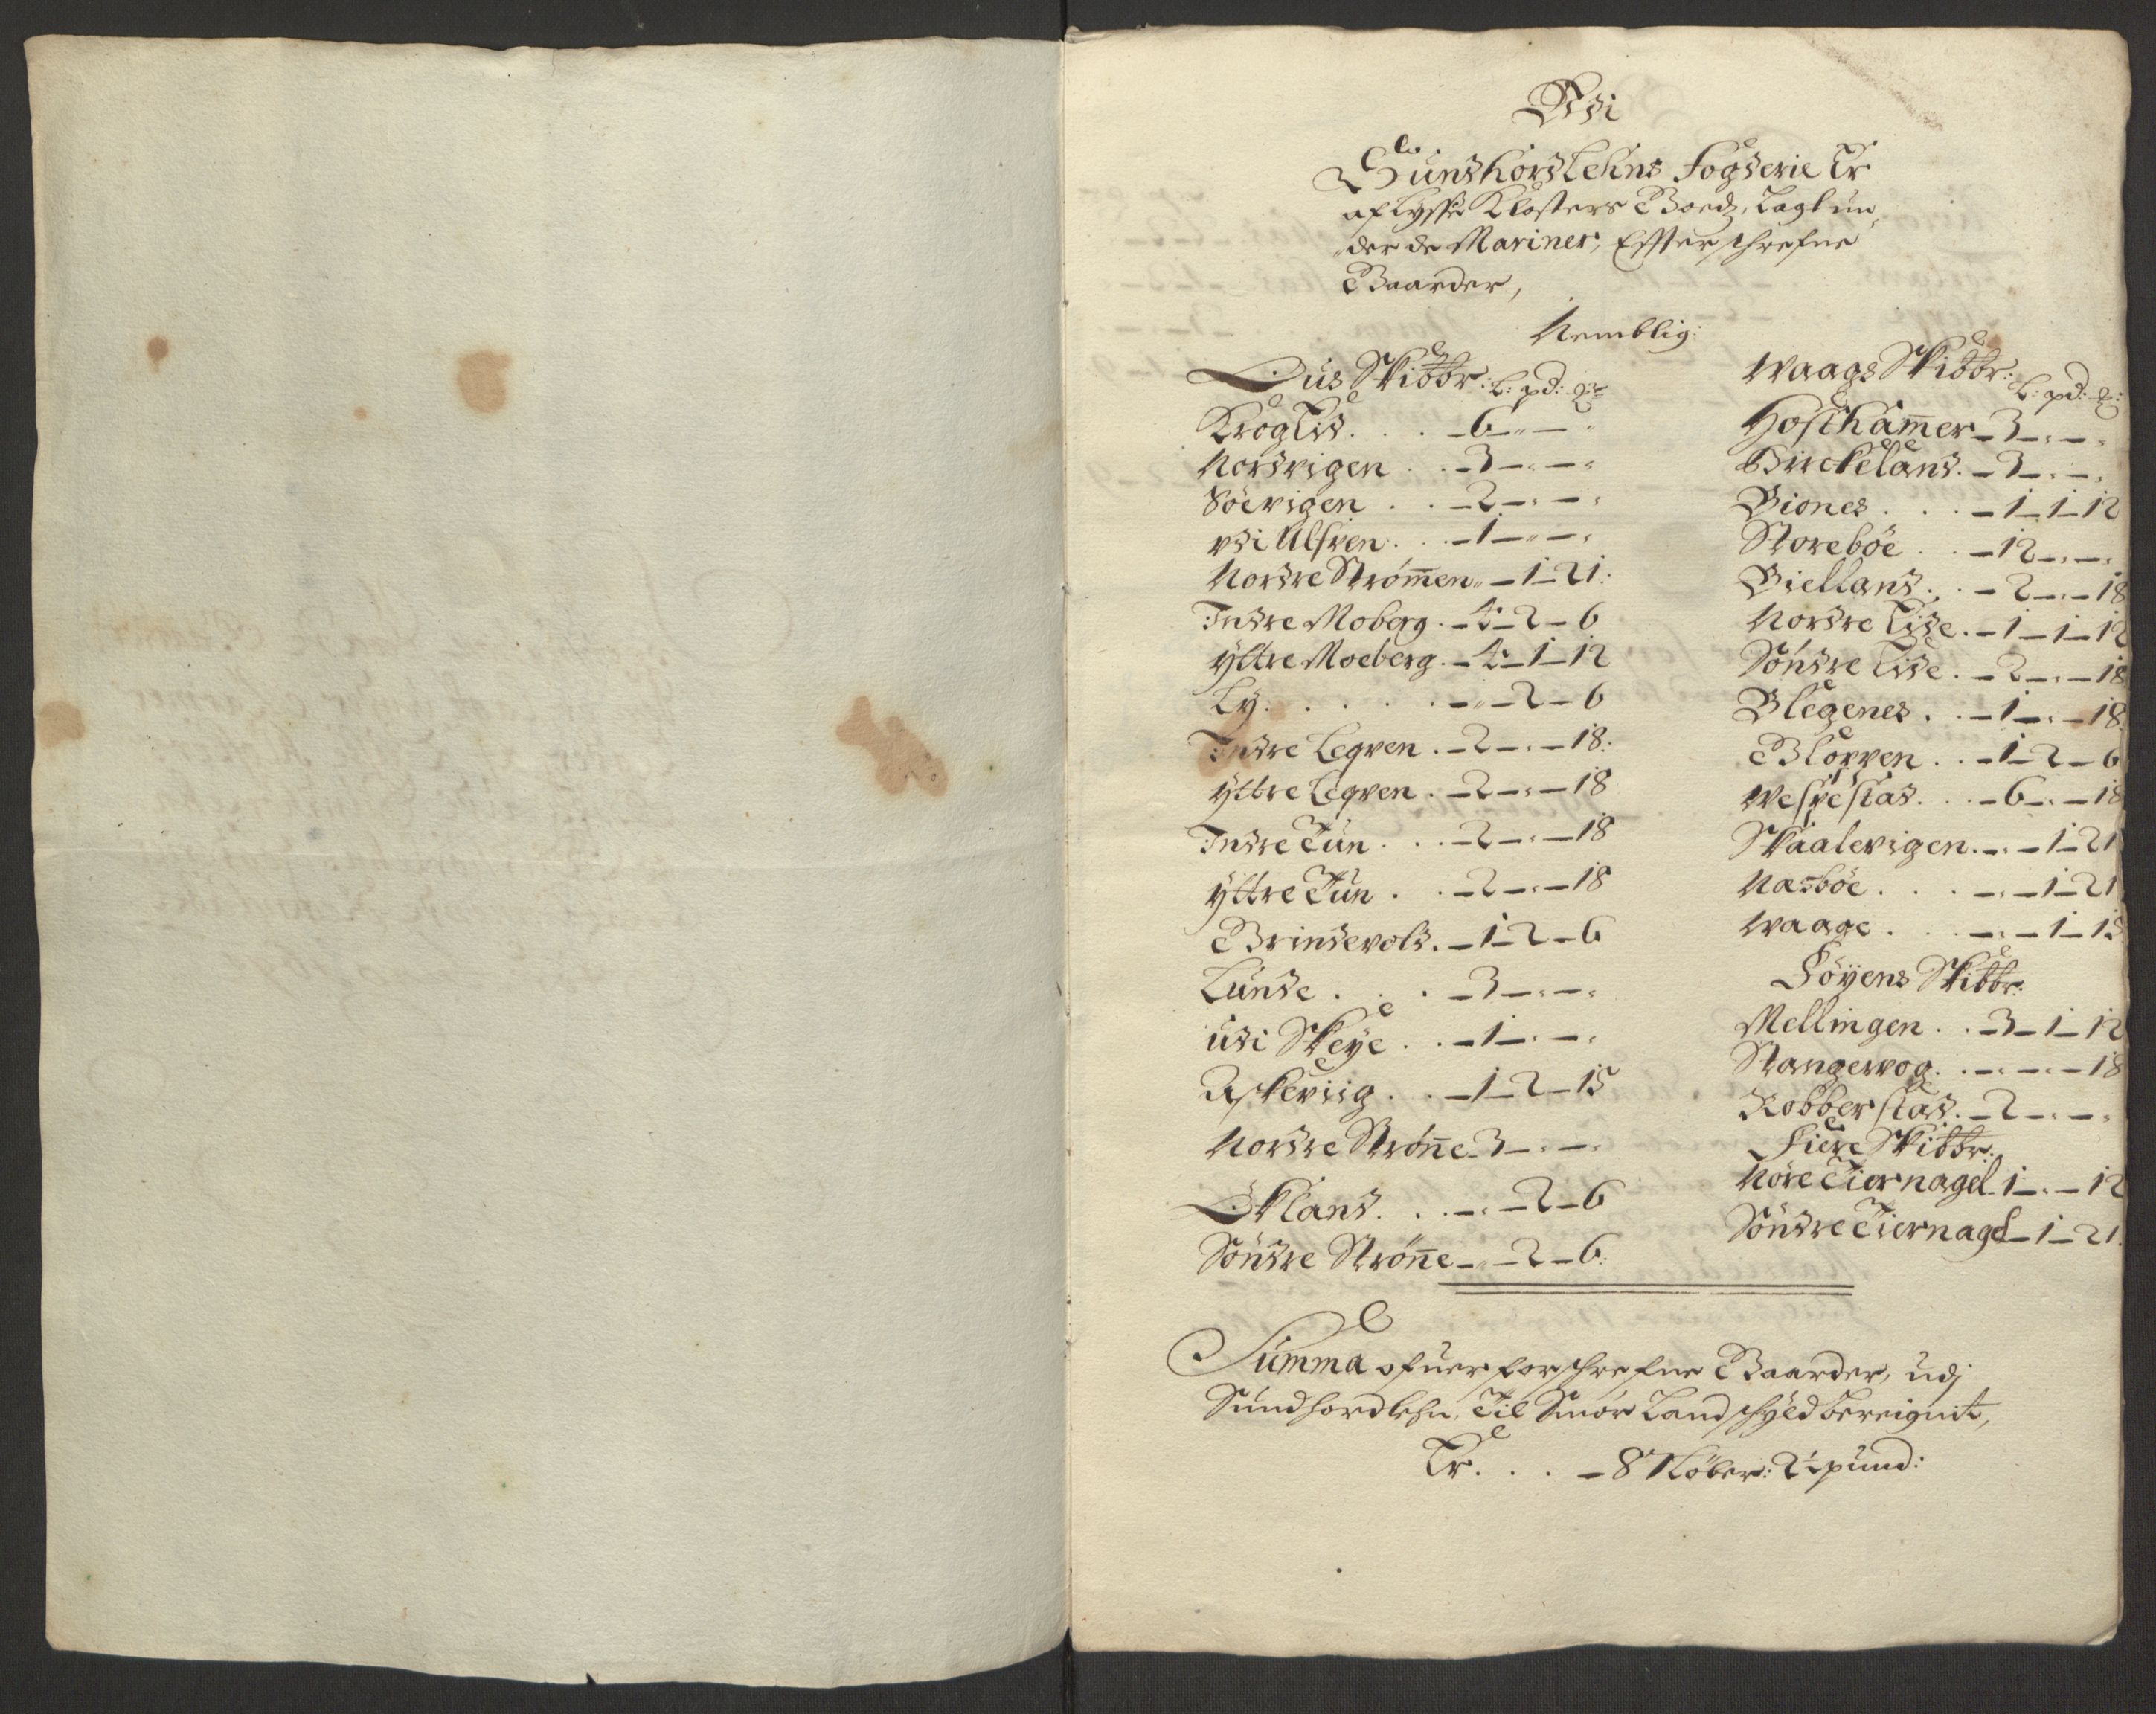 Udi
Sundhordlehns Fogderie Er
af Lysse Closters Goedz, Lagt un„
„der de Mariner, Effterschrefne
Gaarder,
Nemblig:
Ous Skibbr: L: pd: ℔:
Kroglid. . . . – 6 – „ – „
Nordvigen . . – 3 – „ – „
Söevigen . . – 2 – „ – „
udi Ulfven . . – 1 – „ – „
Nordre Strømmen „ – 1 – 21:
Indre Moberg . – 4 – 2 – 6
Yttre Moeberg . – 4 – 1 – 12
Ly . . . . . – „ – 2 – 6
Indre Legven . – 2 – „ – 18:
Yttre Legven . – 2 – „ – 18
Indre Tun . . . – 2 – „ – 18
Yttre Tun . . – 2 – „ – 18
Brindevold . – 1 – 2 – 6
Lunde . . . – 3 – „ – „
udi Skeye . . – 1 – „ – „
Askeviig . . – 1 – 2 – 15
Nordre Strönne – 3 – „ – „
Økland . . . – „ – 2 – 6
Söndre Strönne – „ – 2 – 6:
Waags Skibbr: L: pd: ℔:
Hofthammer – 3 – „ – „
Birckeland . – 3 – „ – „
Biones . . . – 1 – 1 – 12
Storeböe . . – 12 – „ – „
Bielland . . – 2 – „ – 18
Nordre Lide . – 1 – 1 – 12
Söndre Lide . – 2 – „ – 18
Blegenes . . – 1 – „ – 18
Glopven . . – 1 – 2 – 6
Wespestad . . . – 6 – „ – 18
Skaalevigen . – „ – 1 – 21
Nasböe . . . – „ – 1 – 21
Waage . . . – „ – 1 – 15
Föyens Skibbr:
Mellingen . . – 3 – 1 – 12
Stangevog . . – „ – „ – 18
Kobberstad . – 2 – „ – „
Fiere Skibbr:
Nöre Tiernagel 1 – „ – 12
Söndre Tiernagel – 1 – 21
Summa ofuer forschrefne Gaarder, udj
Sundhordlehn, Til Smör Landschyld bereignit,
Er . . . – 87 Löber: 2½ pund: